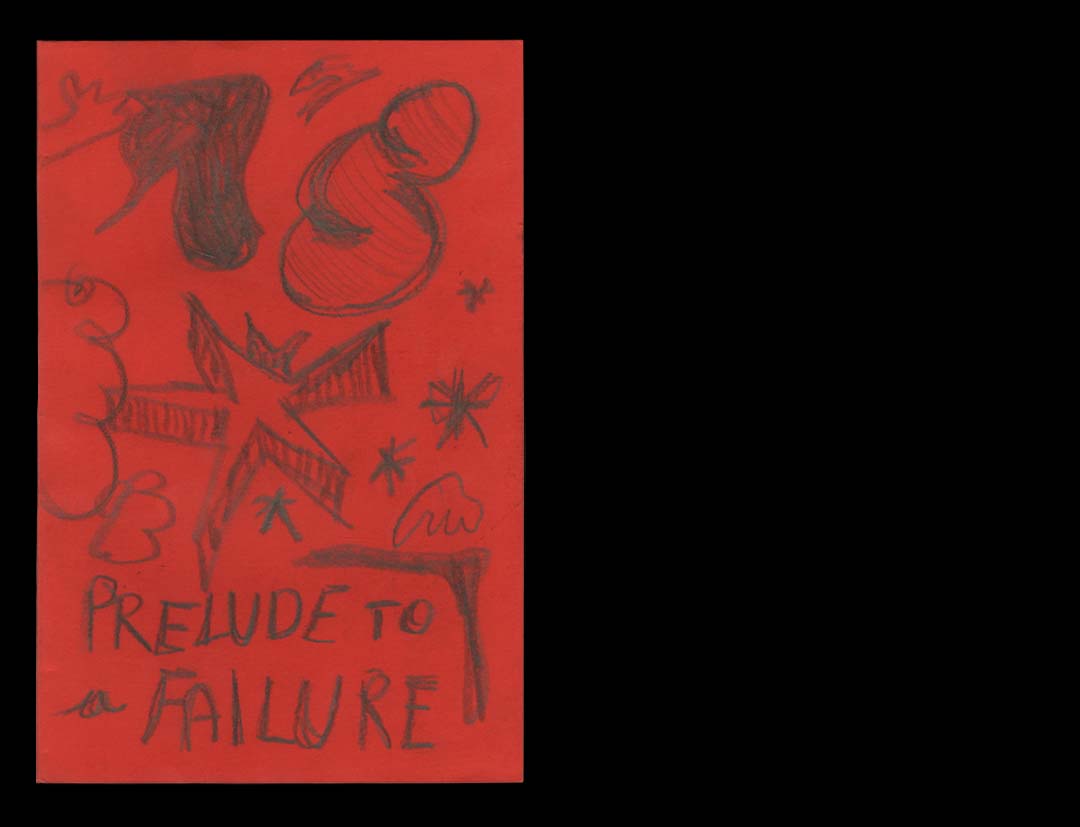 PRELUDE TO
a FAILURE